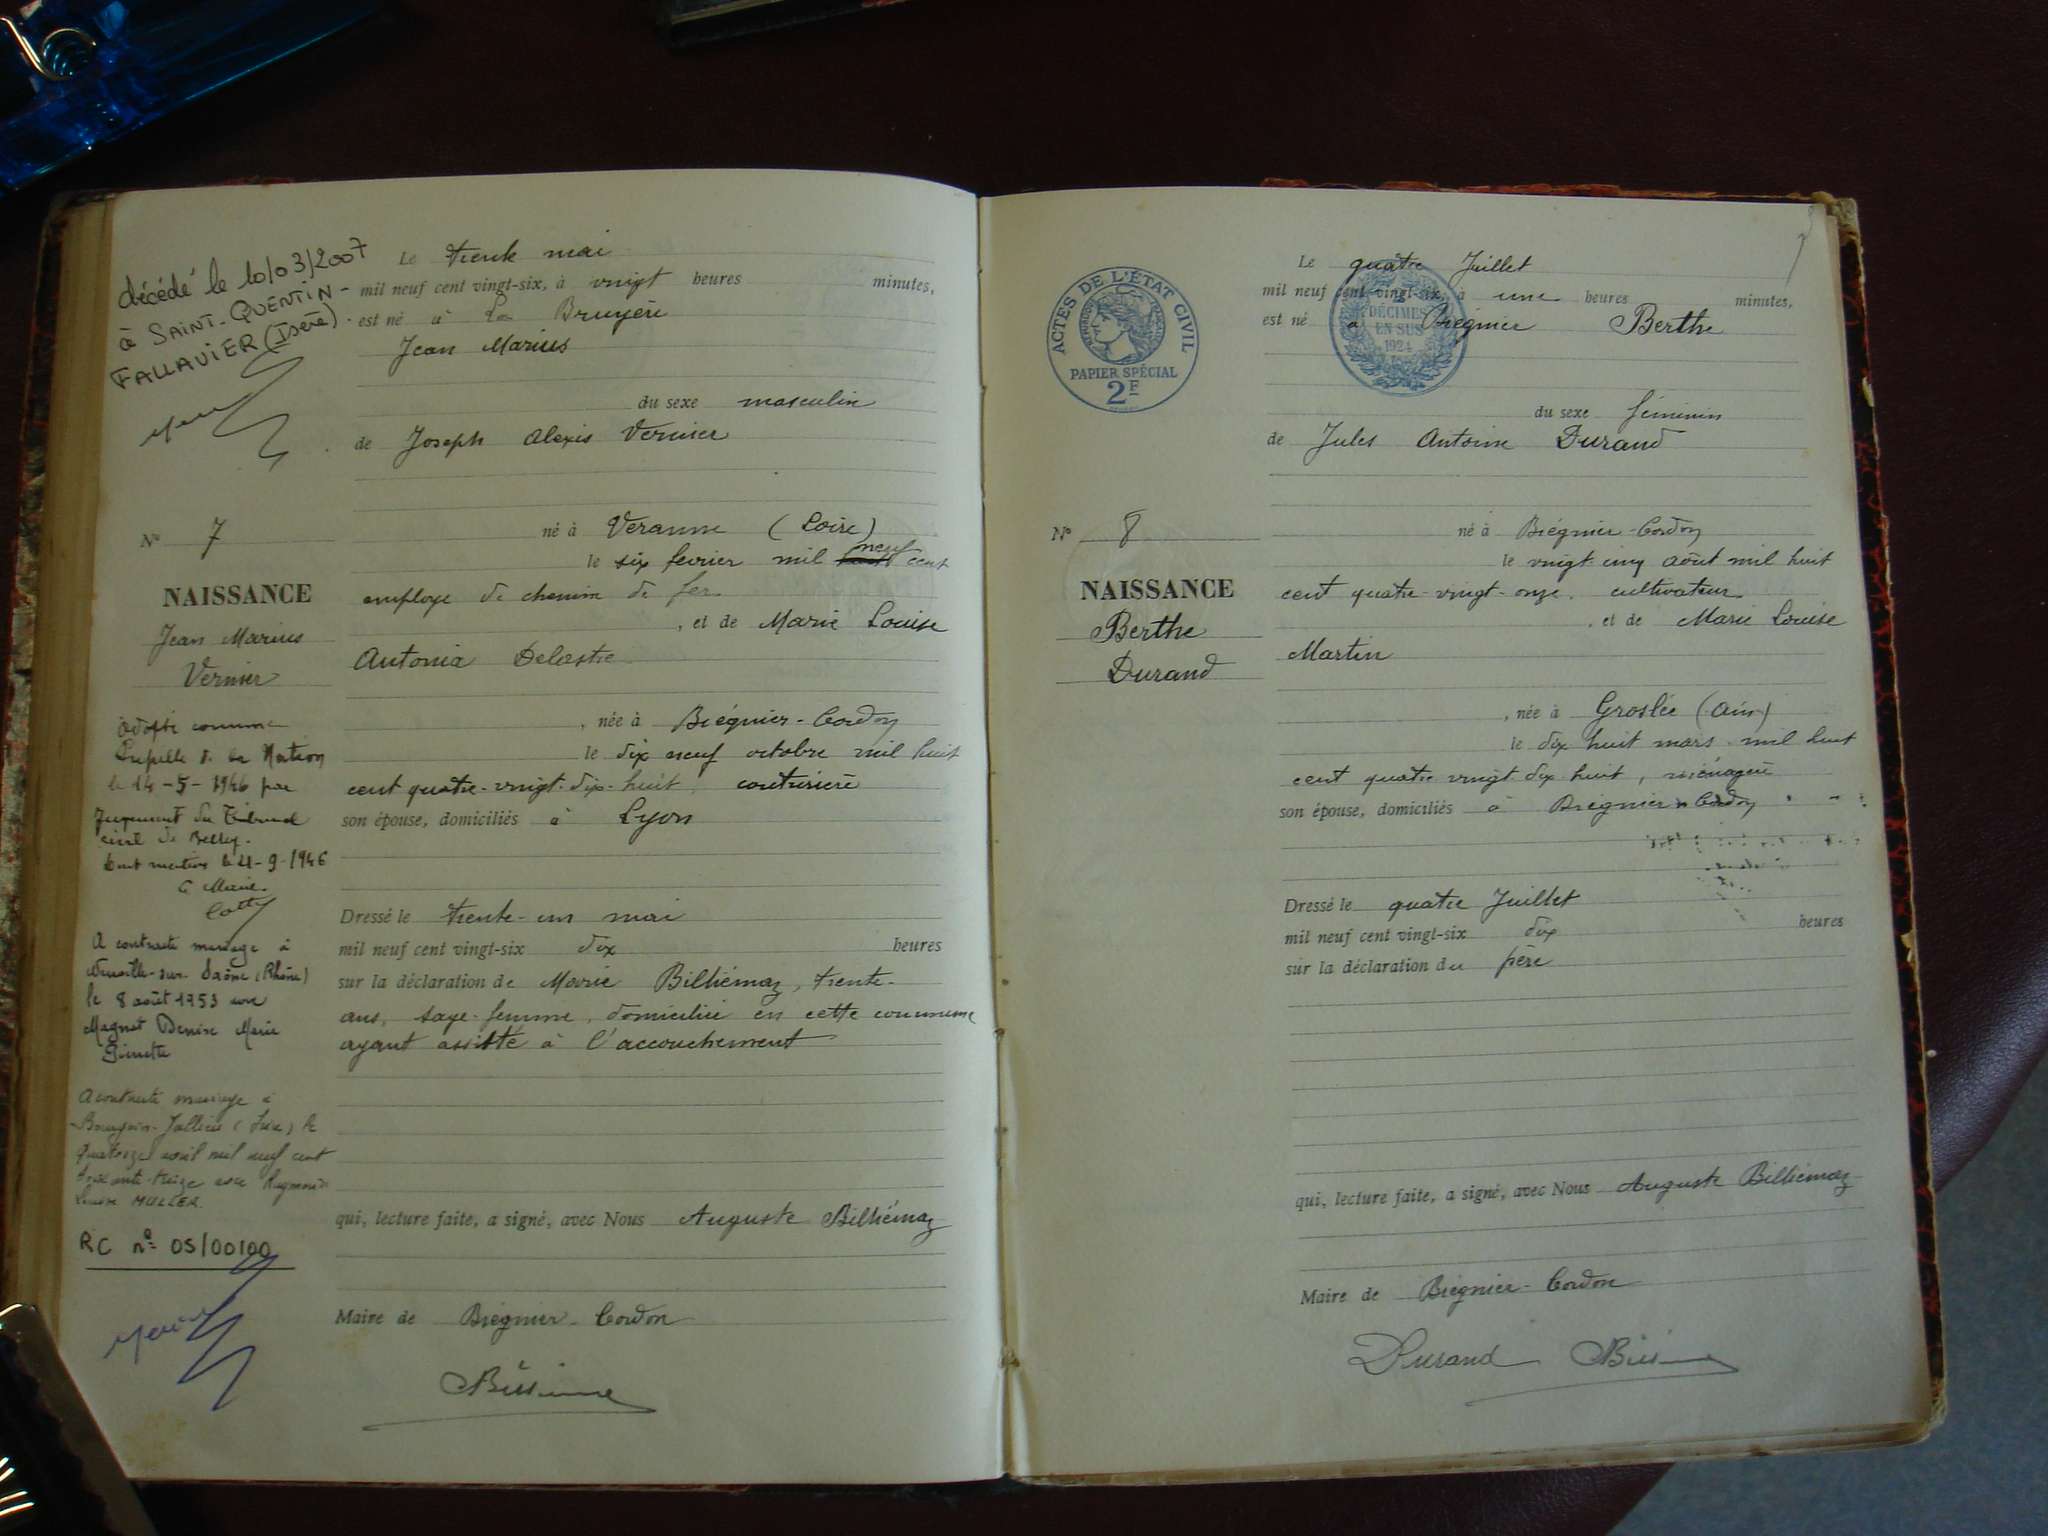 décédé le 10/03/2007
à SAINT-QUENTIN-
FALLAVIER (Isère).
N° 7
NAISSANCE
Jean Marius
Vernier
adopté comme
Pupille de la Nation
le 14-5-1946 par
Jugement du Tribunal
civil de Belley.
le 21-9-1946
Le Maire.
A contracté mariage à
Neuville-sur-Saône (Rhône)
le 8 août 1953 avec
Magnat Denise Marie
Ginette
A contracté mariage à
Bourgoin-Jallieu (Isère) le
quatorze avril mil neuf cent
soixante-treize avec Raymonde
Louise MULLER.
RC n° 05/00100
Le trente mai
mil neuf cent vingt-six, à vingt heures minutes,
est né à La Bruyère
Jean Marius
du sexe masculin
de Joseph Alexis Vernier
né à Veranne (Loire)
le six fevrier mil neuf cent
employe de chemin de fer
, et de Marie Louise
Antonia Delastre
, née à Brégnier-Cordon
le dix neuf octobre mil huit
cent quatre-vingt-dix-huit, couturière
son épouse, domiciliés à Lyon
Dressé le trente-un mai
mil neuf cent vingt-six dix heures
sur la déclaration de Marie Billiémaz, trente-
ans, sage-femme, domiciliée en cette commune
ayant assisté à l'accouchement
qui, lecture faite, a signé, avec Nous Auguste Billiémaz
Maire de Brégnier-Cordon
ACTES DE L'ÉTAT CIVIL
PAPIER SPÉCIAL
2F
2 DÉCIMES
EN SUS
1924
N° 8
NAISSANCE
Berthe
Durand
Le quatre Juillet
mil neuf cent vingt-six, à une heures minutes,
est né à Brégnier Berthe
du sexe féminin
de Jules Antoine Durand
né à Brégnier-Cordon
le vingt-cinq août mil huit
cent quatre-vingt-onze, cultivateur
, et de Marie Louise
Martin
, née à Groslée (Ain)
le dix huit mars mil huit
cent quatre vingt dix huit, ménagère
son épouse, domiciliés à Brégnier-Cordon
Dressé le quatre Juillet
mil neuf cent vingt-six dix heures
sur la déclaration du père
qui, lecture faite, a signé, avec Nous Auguste Billiémaz
Maire de Brégnier-Cordon
Durand